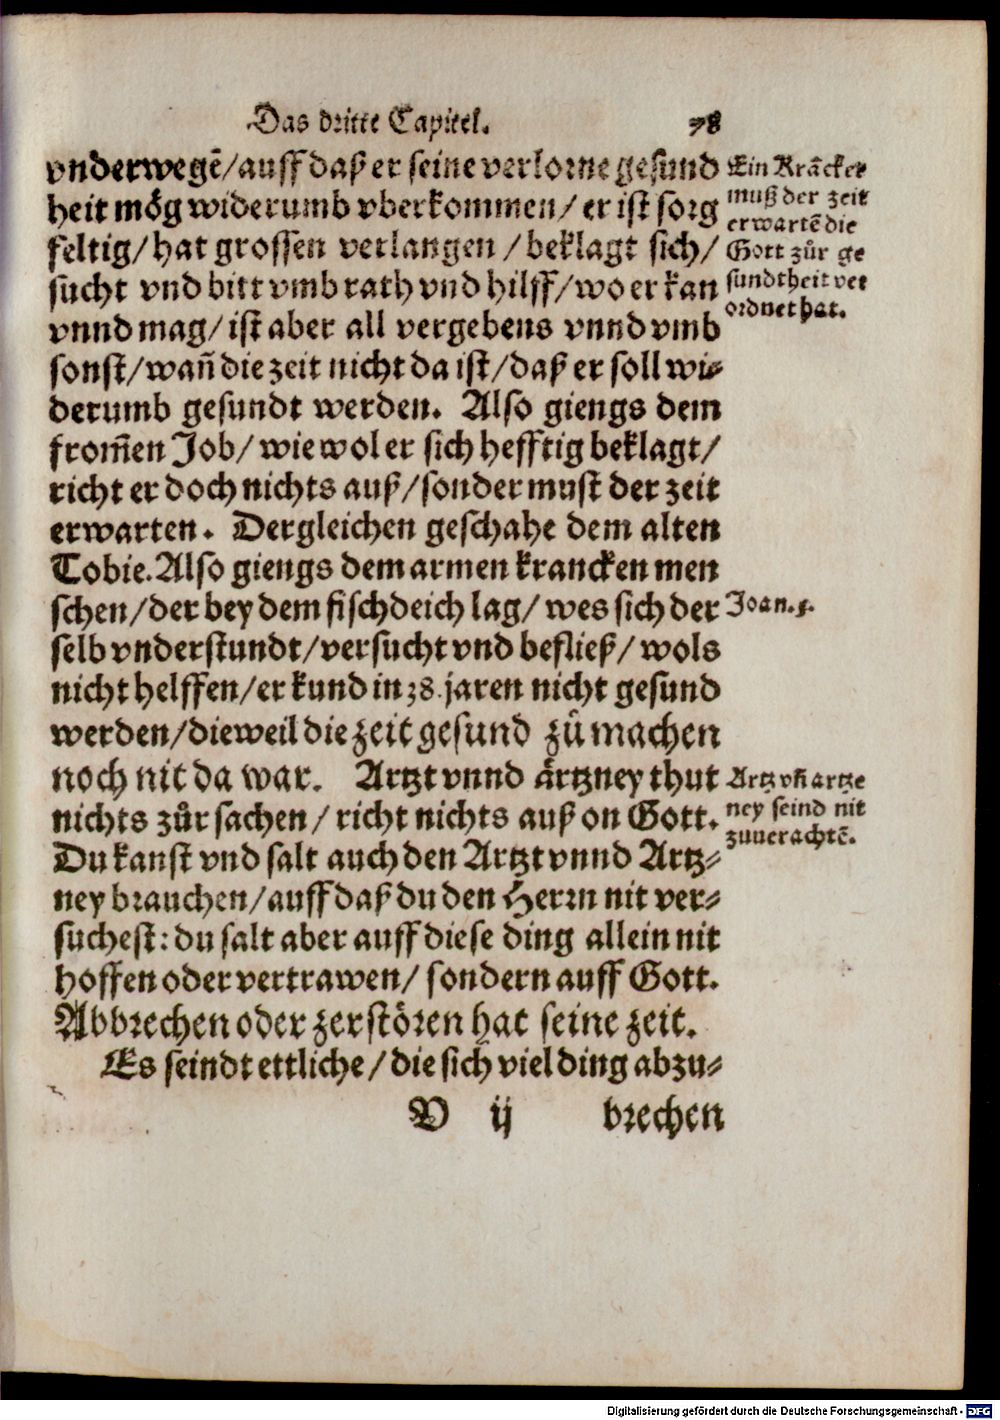 Das dritte Capitel. 78
vnderwegē/auff daß er seine verlorne gesund
heit mög widerumb vberkommen/ er ist sorg
feltig/ hat grossen verlangen /beklagt sich/
sucht vnd bitt vmb rath vnd hilff/wo er kan
vnnd mag/ ist aber all vergebens vnnd vmb
sonst/wañ die zeit nicht da ist/daß er soll wi⸗
derumb gesundt werden. Also giengs dem
from̃en Job/ wie wol er sich hefftig beklagt/
richt er doch nichts auß/sonder must der zeit
erwarten. Dergleichen geschahe dem alten
Tobie. Also giengs dem armen krancken men
schen/der bey dem fischdeich lag/ wes sich der
selb vnderstundt/versucht vnd befließ/ wols
nicht helffen/er kund in 38. jaren nicht gesund
werden/dieweil die zeit gesund zů machen
noch nit da war. Artzt vnnd ärtzney thut
nichts zůr sachen/ richt nichts auß on Gott.
Du kanst vnd salt auch den Artzt vnnd Artz⸗
ney brauchen/auff daß du den Herrn nit ver⸗
suchest: du salt aber auff diese ding allein nit
hoffen oder vertrawen/ sondern auff Gott.
Abbrechen oder zerstören hat seine zeit.
Es seindt ettliche/die sich viel ding abzu⸗
V ij brechen
Ein Krācker
muß der zeit
erwartē die
Gott zůr ge
sundtheit ver
ordnet hat.
Joan. 5.
Artz vñ artze
ney seind nit
zuuerachtē.
Digitalisierung gefördert durch die Deutsche Forschungsgemeinschaft - DFG